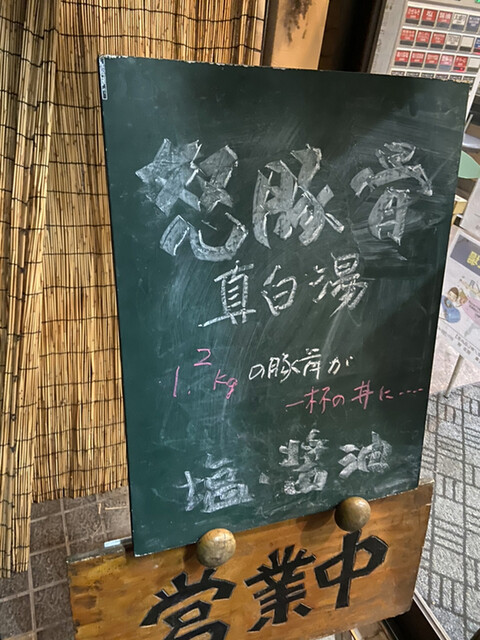 怒豚骨
真白湯
1.2kgの豚骨が
一杯の丼に....
塩・醤油
営業中